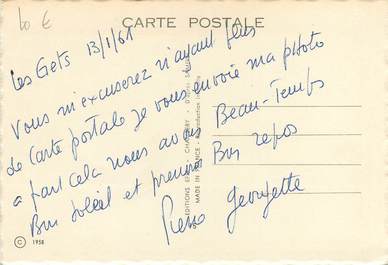 60 €
CARTE POSTALE
Les Gets 13/1/61
Vous m'excuserez n'ayant plus
de Carte postale je vous envoie ma photo
a part cela nous avons Beau-Temps
Bon soleil et prenons Bon repos
Georgette
EDITIONS
CHAMBERY
MADE IN FRANCE - Reproduction
© 1958